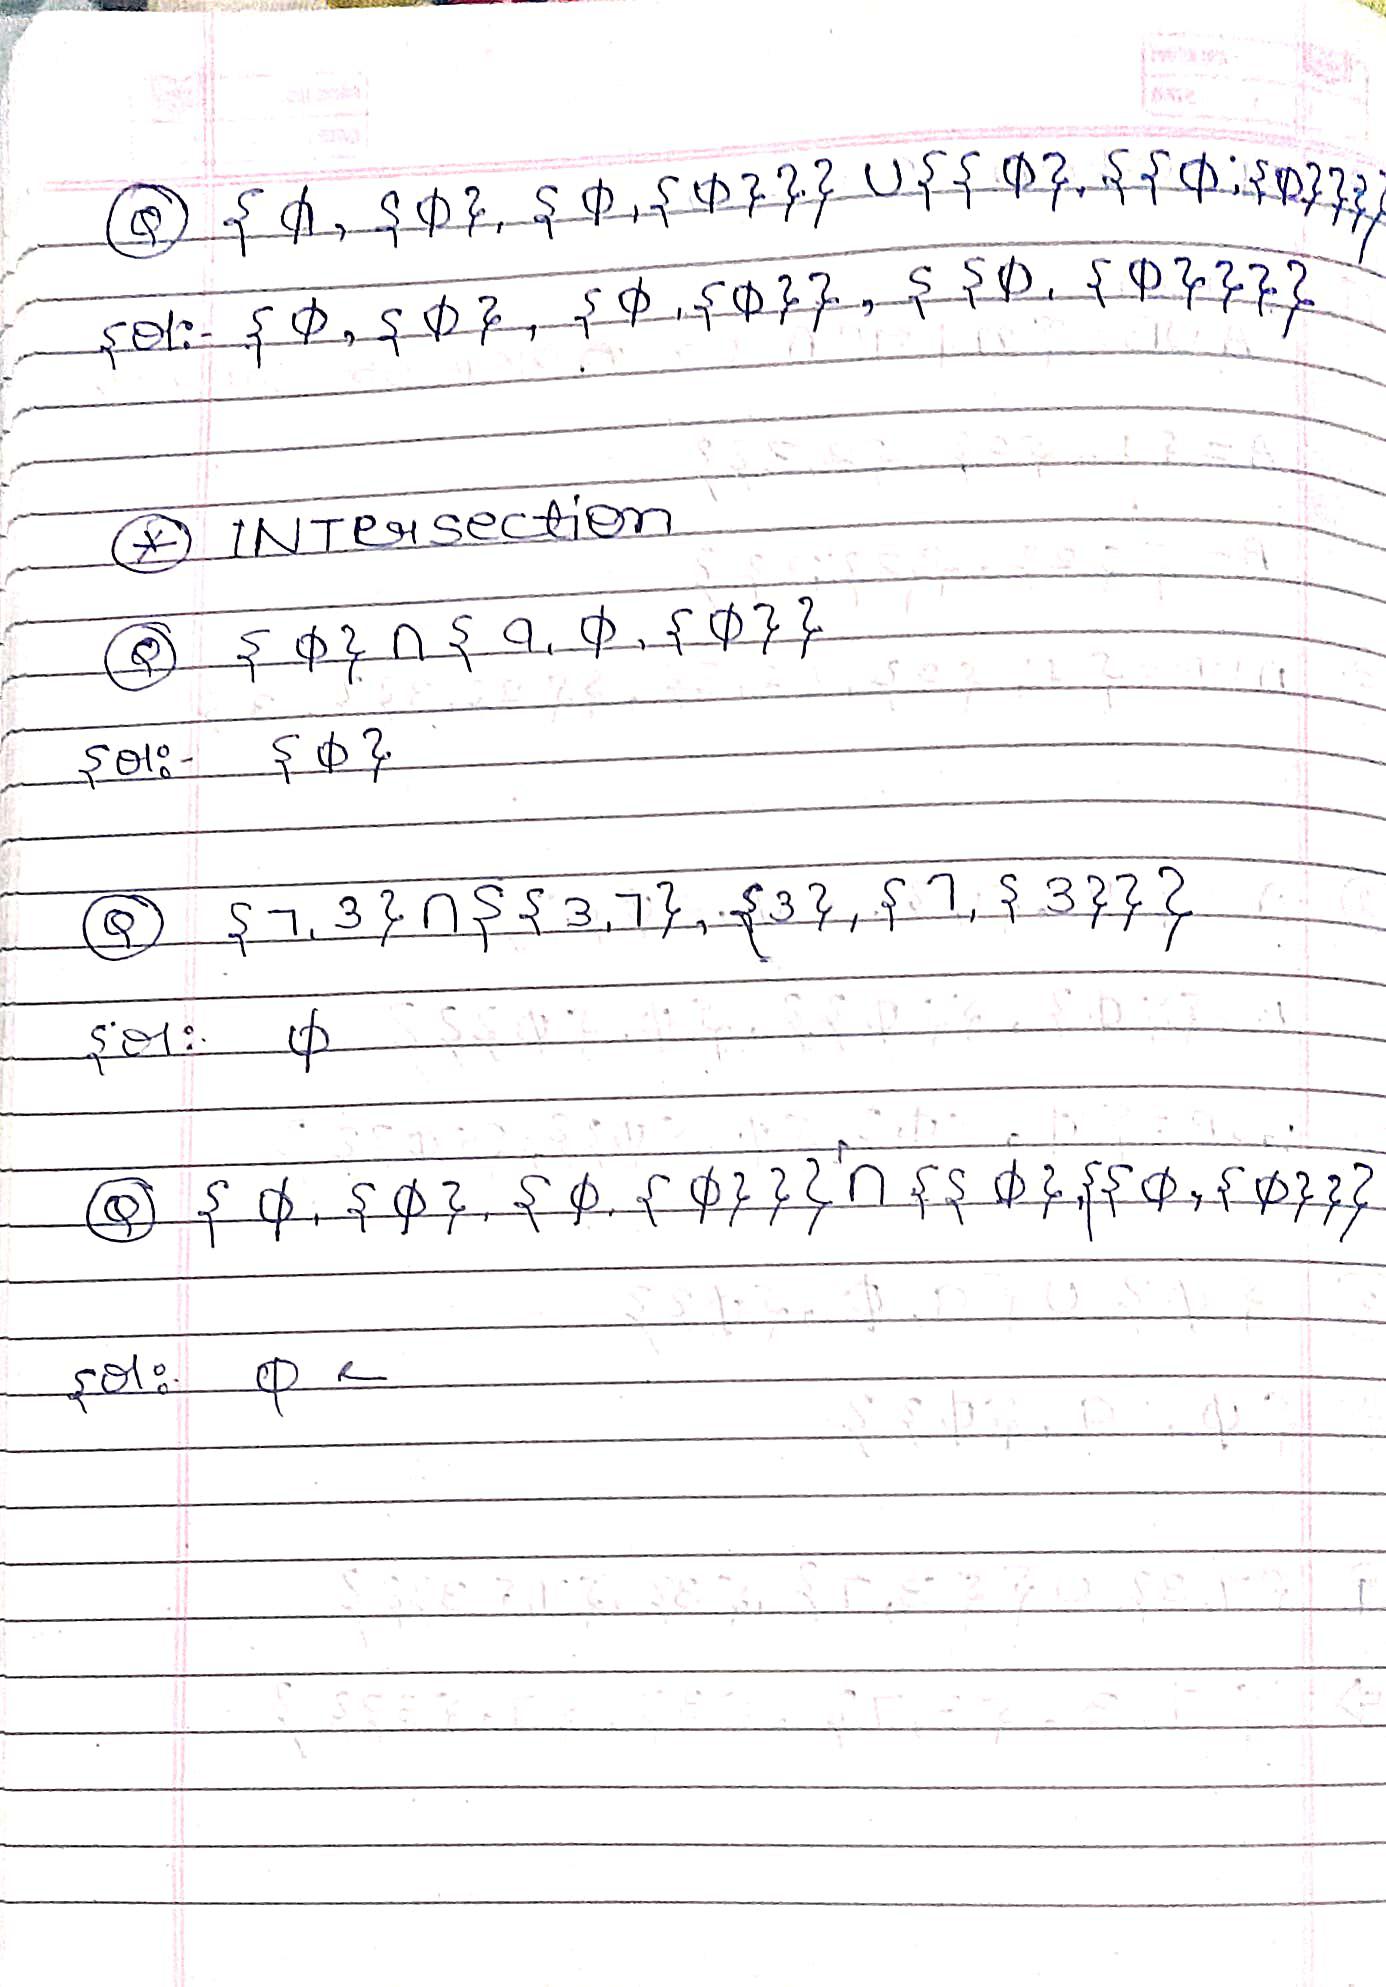 Q {ϕ, {ϕ}, {ϕ, {ϕ}}} ∪ {{ϕ}, {{ϕ, {ϕ}}}}
sol:- {ϕ, {ϕ}, {ϕ, {ϕ}}, {{ϕ, {ϕ}}}}
* INTersection
Q {ϕ} ∩ {a, ϕ, {ϕ}}
sol:- {ϕ}
Q {7, 3} ∩ {{3, 7}, {3}, {7, {3}}}
sol:. ϕ
Q {ϕ, {ϕ}, {ϕ, {ϕ}}} ∩ {{ϕ}, {{ϕ, {ϕ}}}
sol:. ϕ